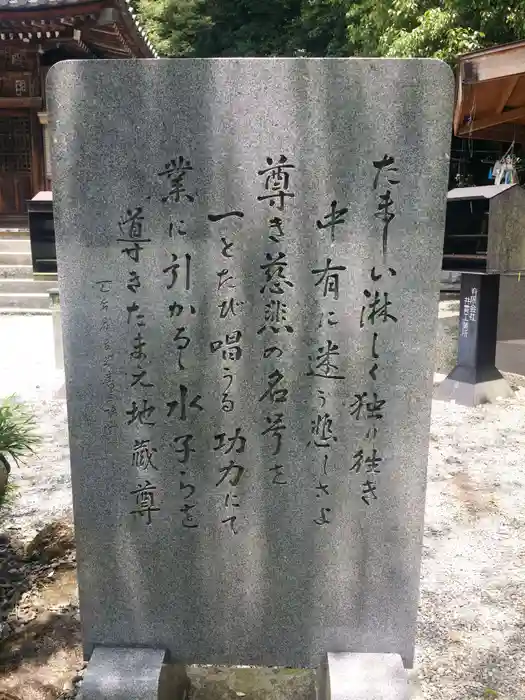 たましい淋しく独り往き
中有に迷う悲しさよ
尊き慈悲の名号を
一とたび唱うる功力にて
業に引かるゝ水子らを
導きたまえ地蔵尊
有限会社
共豊工務所